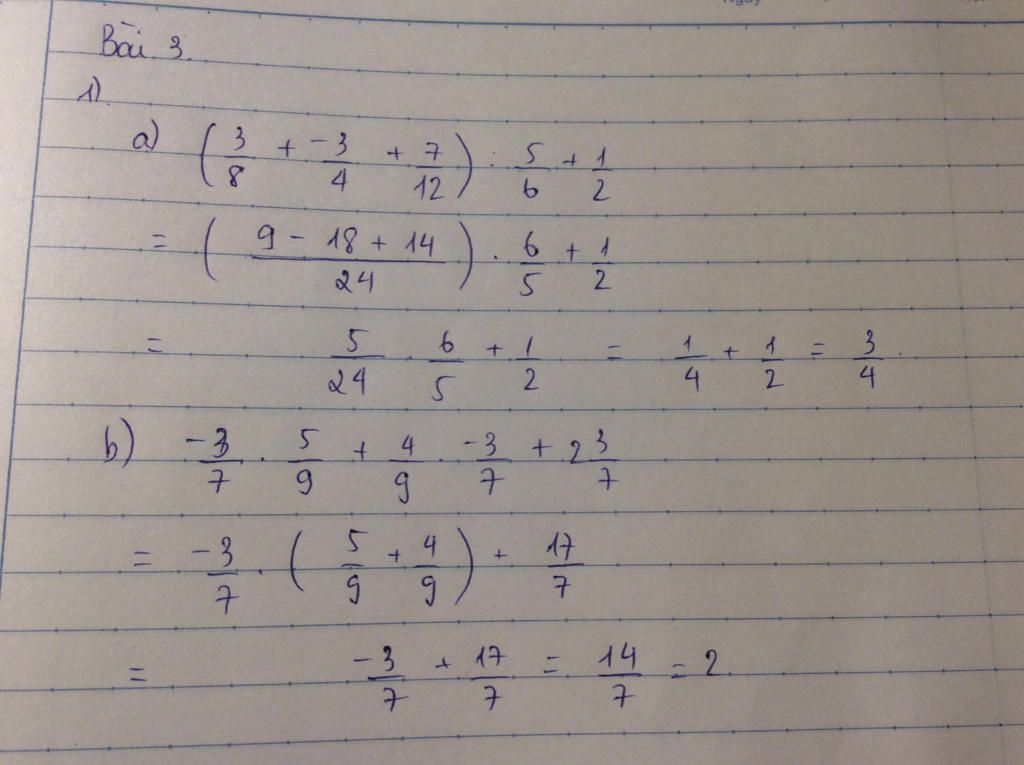 Ngày
Bài 3.
1)
a) (3/8 + -3/4 + 7/12) : 5/6 + 1/2
= (9 - 18 + 14 / 24) . 6/5 + 1/2
= 5/24 . 6/5 + 1/2 = 1/4 + 1/2 = 3/4.
b) -3/7 . 5/9 + 4/9 . -3/7 + 2 3/7
= -3/7 . (5/9 + 4/9) + 17/7
= -3/7 + 17/7 = 14/7 = 2.